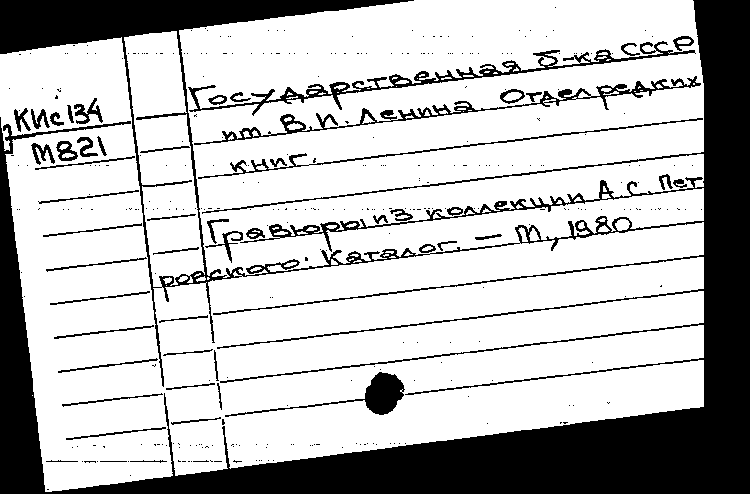 Государственная б-ка СССР
КИс134
им. В.И. Ленина. Отдел редких
М821
книг.
Гравюры из коллекции А.С. Пет-
ровского: Каталог. — М., 1980